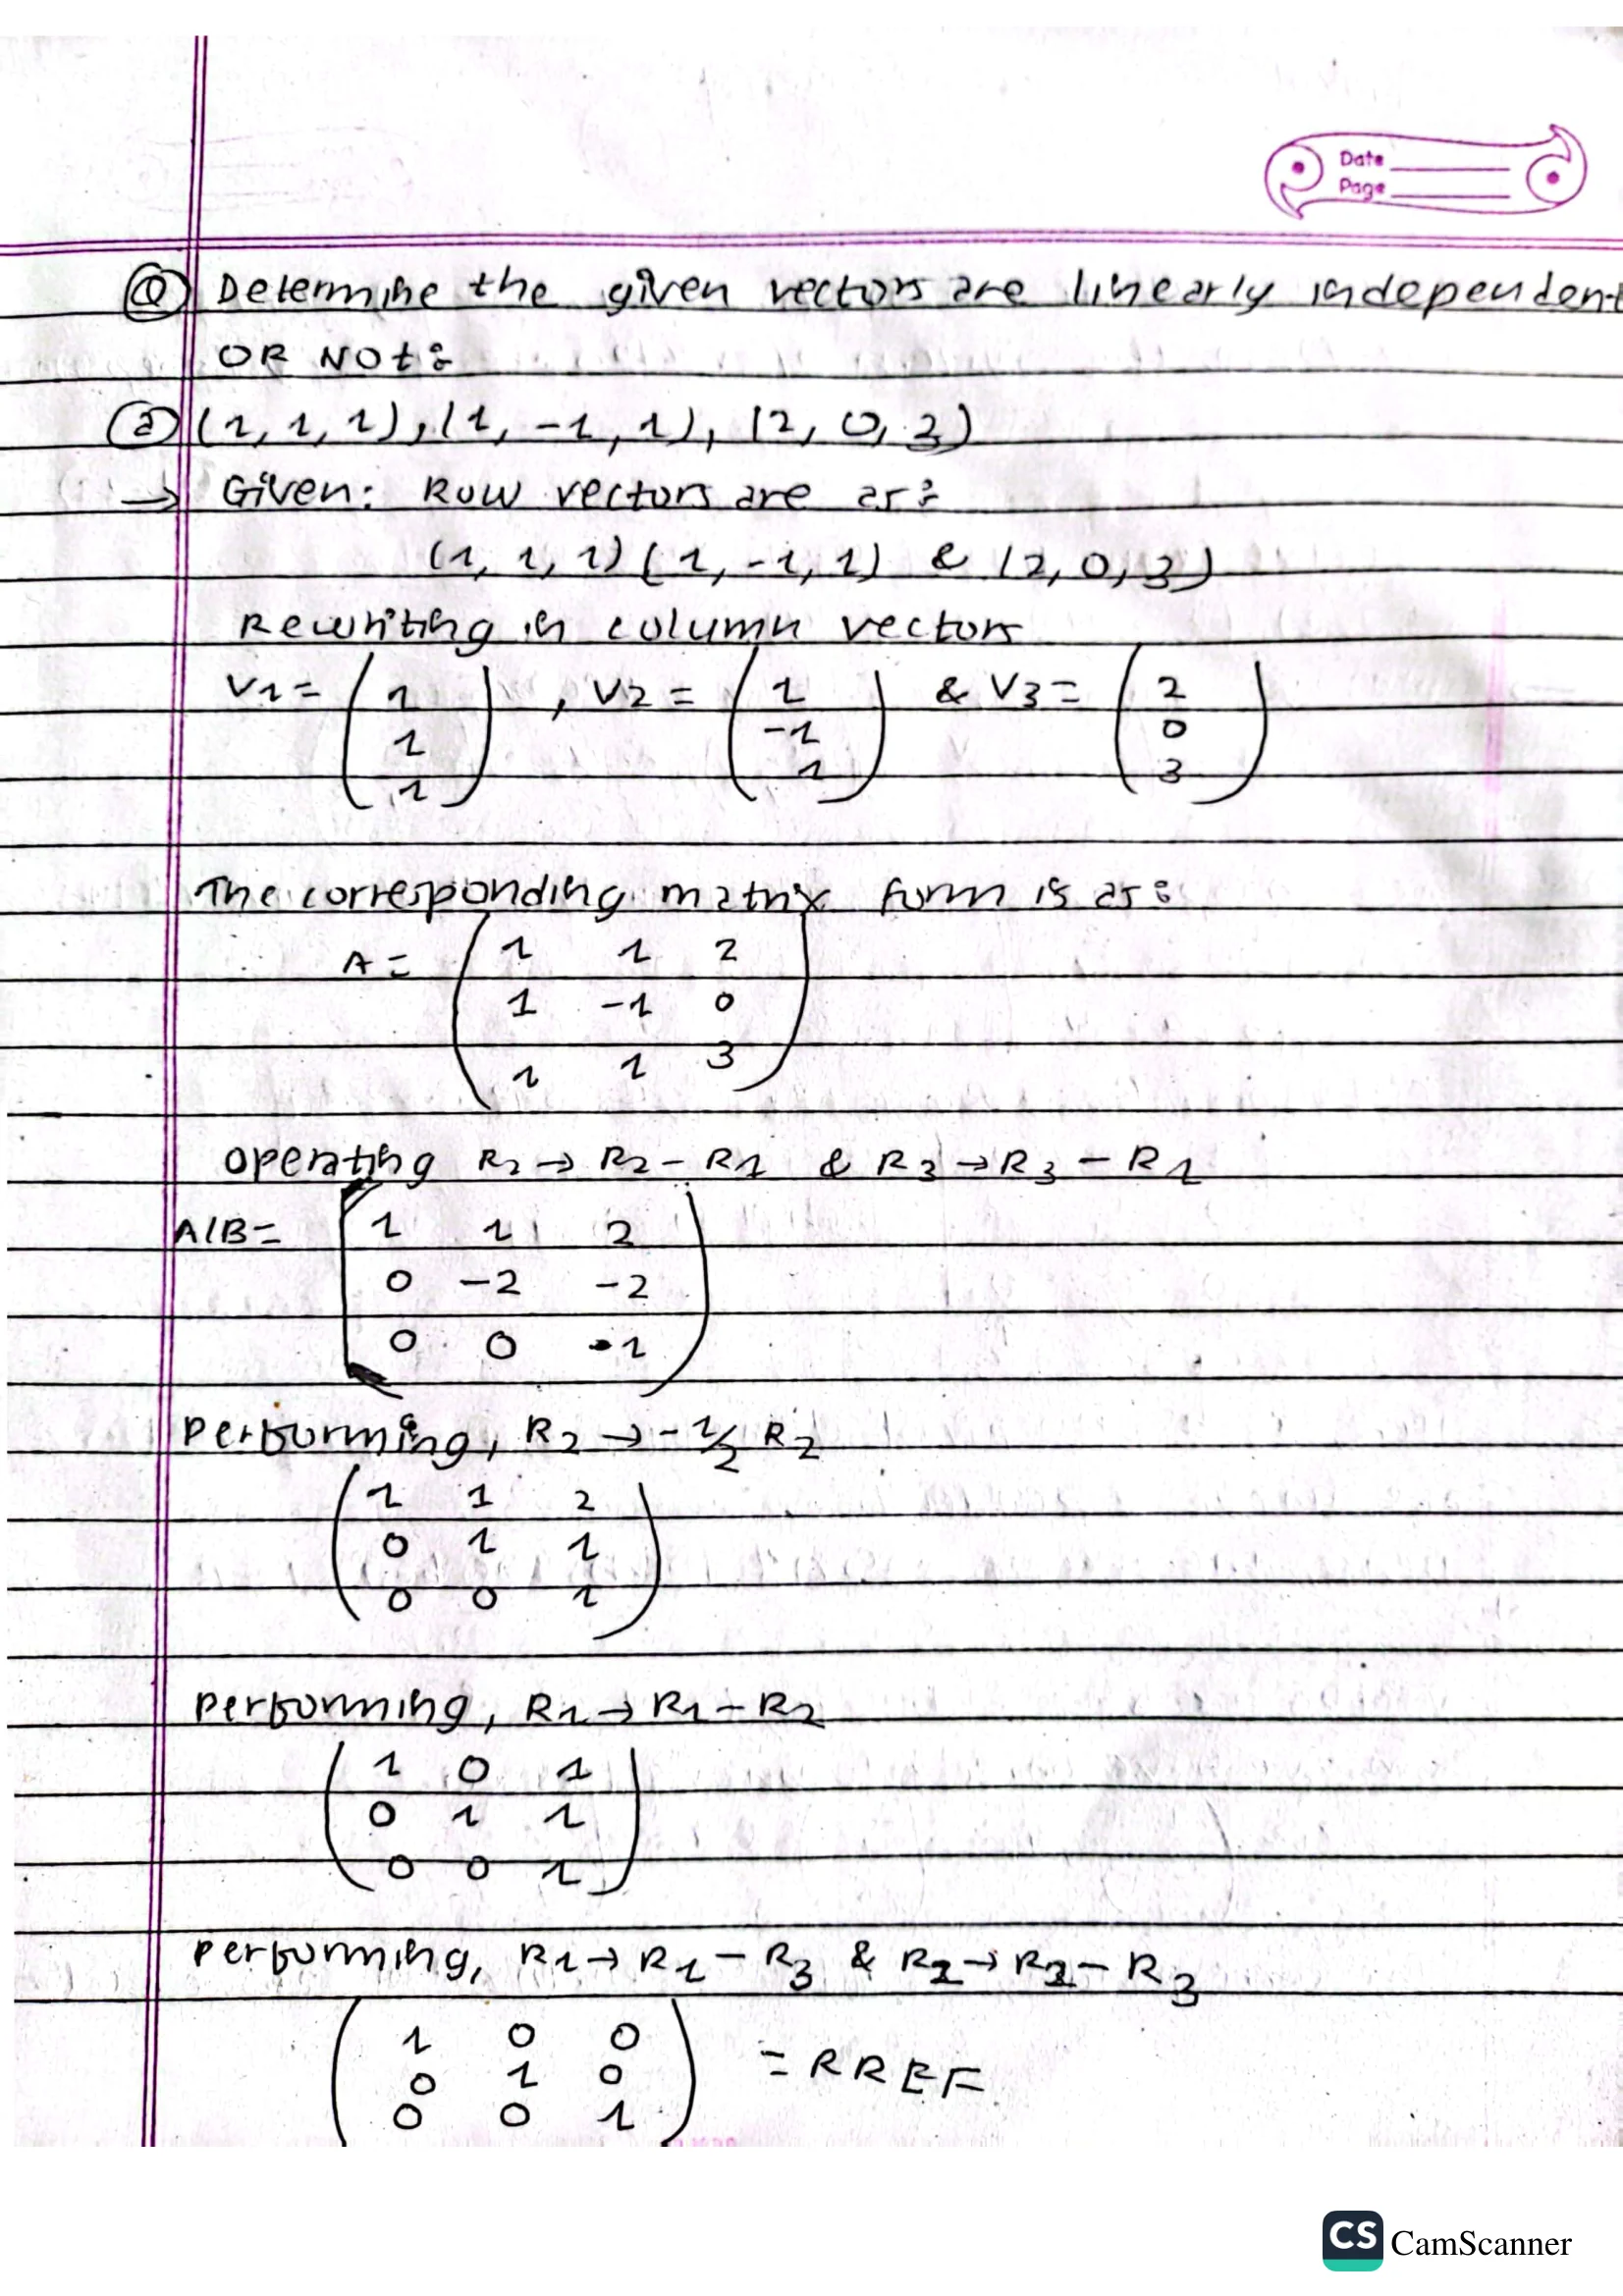 Date
Page
Q Determine the given vectors are linearly independent
OR NOt:
a (1, 1, 1), (1, -1, 1), (2, 0, 3)
→ Given: Row vectors are as:
(1, 1, 1) (1, -1, 1) & (2, 0, 3)
Rewriting in column vectors
V1 = ( 1 ) , V2 = ( 1 ) & V3 = ( 2 )
1 -1 0
1 1 3
The corresponding matrix form is as:
A = 1 1 2
1 -1 0
1 1 3
Operating R2 → R2 - R1 & R3 → R3 - R1
A/B = 1 1 2
0 -2 -2
0 0 1
Performing, R2 → -1/2 R2
1 1 2
0 1 1
0 0 1
Performing, R1 → R1 - R2
1 0 1
0 1 1
0 0 1
Performing, R1 → R1 - R3 & R2 → R2 - R3
1 0 0
0 1 0 = RREF
0 0 1
CS CamScanner